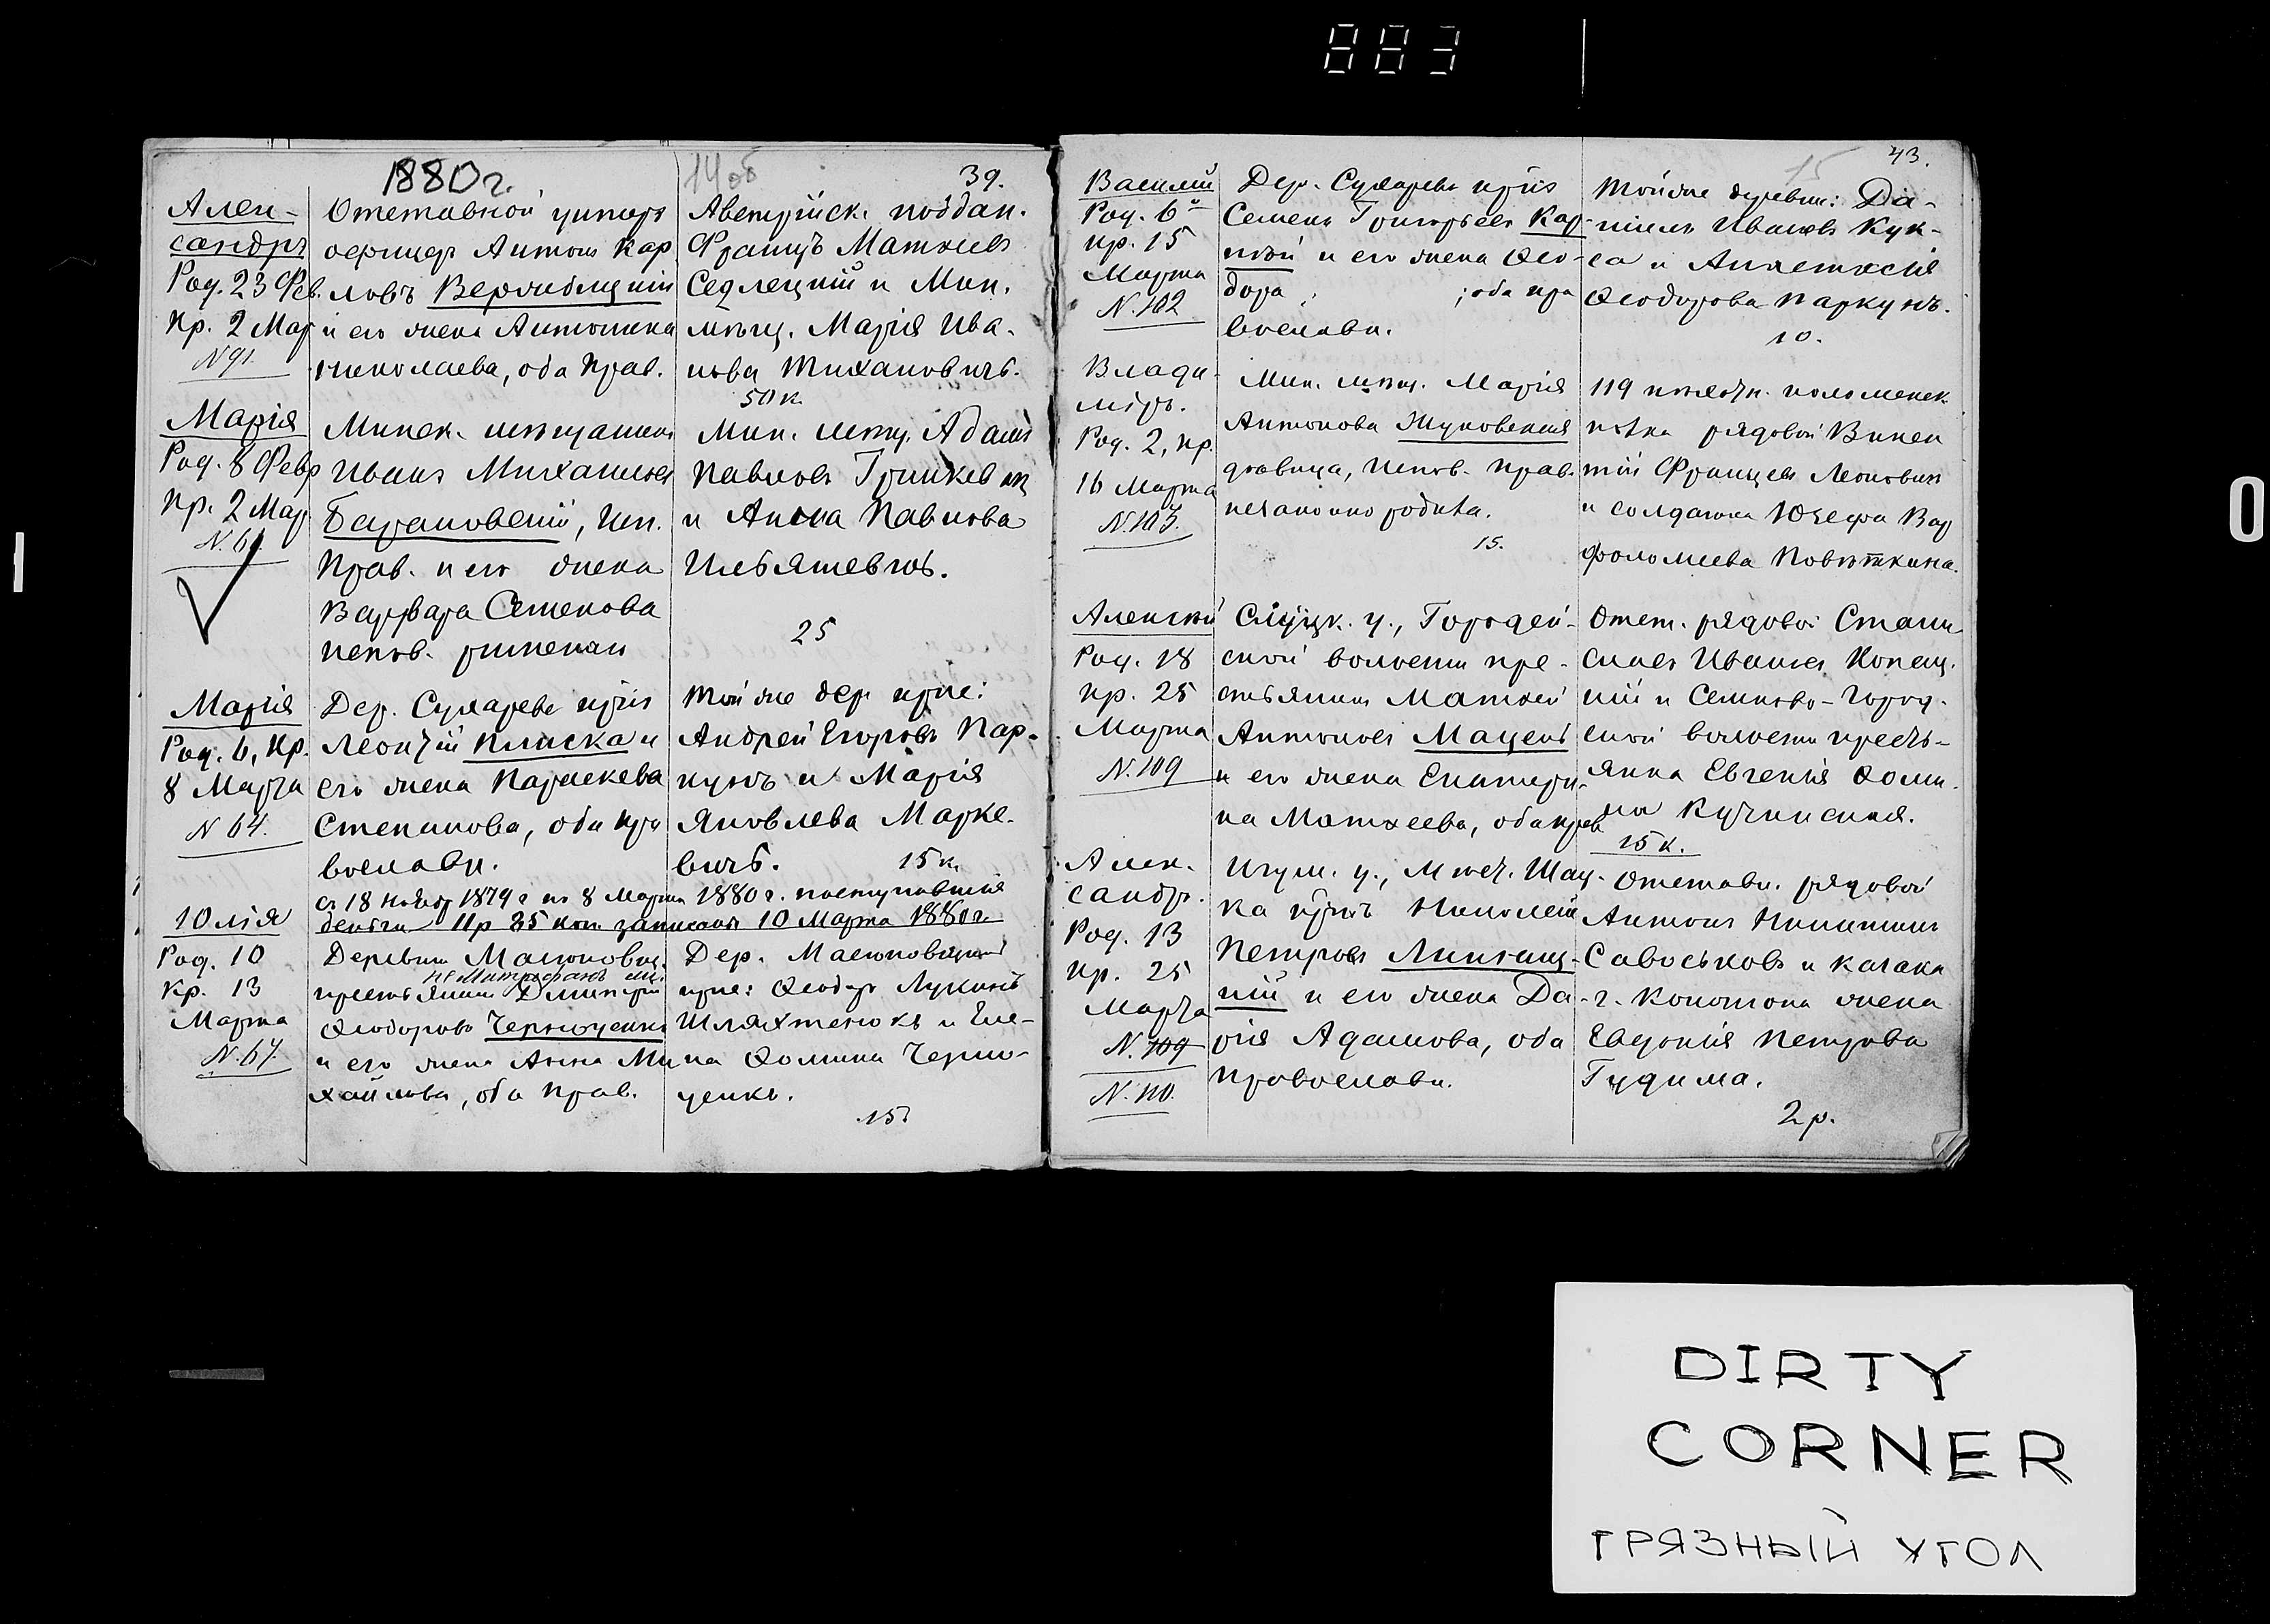 883
1880 г.
14 об
39.
Алек-
сандръ
Род. 23 Фев.
Кр. 2 Мар
N 91.
Отставной унтеръ
офицеръ Антонъ Кар
ловъ Вержбицкій
и его жена Антонина
Николаева, оба прав.
Австрійск. поддан.
Францъ Матвѣевъ
Седлецкій и Мин.
мѣщ. Марія Ива-
нова Тихановичъ.
50 к.
Марія
Род. 8 Февр
Кр. 2 Мар
N. 61.
Минск. мѣщанинъ
Иванъ Михаиловъ
Барановскій, исп.
Прав. и его жена
Варвара Семенова
исповѣ. римскаго
Мин. мѣщ. Адамъ
Павловъ Гринкевич
и Анна Павлова
Ильяшевичъ.
25
Марія
Род. 6, Кр.
8 Марта
N 64.
Дер. Сухарева кр-нъ
Леонтій Плиска и
его жена Параскева
Степанова, оба пра
вославн.
Той же дер. кр-не:
Андрей Егоровъ Пар-
кунъ и Марія
Яковлева Марке-
вичъ.
15 к.
съ 18 Ноябр 1879 г по 8 Марта 1880 г. поступившія
деньги 11 р 85 коп. записаны 10 Марта 1880 г.
Юлія
Род. 10
Кр. 13
Марта
N. 67.
Деревни Масюковщ.
не Митрофанъ ли
крестьянинъ Дмитрій
Ѳеодоровъ Черноуценко
и его жена Анна Ми
хайлова, оба прав.
Дер. Масюковщины
кр-не: Ѳеодоръ Лукинъ
Шляхтенокъ и Еле-
на Ѳомина Черно-
ценкъ.
15
15
43.
Василій
Род. 6
кр. 15
Марта
N. 102
Дер. Сухарева кр-нъ
Семенъ Григорьевъ Кар-
пѣй и его жена Ѳео-
дора ; оба пра
вославн.
Той же деревни: Да-
ніилъ Ивановъ Кук-
са и Анастасія
Ѳеодорова Паркунъ.
10.
Влади-
міръ.
Род. 2, кр.
16 Марта
N. 103.
Мин. мѣщ. Марія
Антонова Жуковская
дѣвица, исповѣ. прав.
незаконно родила.
15.
119 пѣхотн. коломенск.
полка рядовой Викен
тій Францевъ Леоновичъ
и солдатка Юзефа Вар
ѳоломеева Повѣткина.
Алексѣй
Род. 18
кр. 25
Марта
N. 109
Слуцк. у., Городей-
ской волости кре-
стьянинъ Матвей
Антоновъ Мацень
и его жена Екатери-
на Матвеева, оба прав
Отст. рядовой Стани
славъ Ивановъ Копец-
кій и Семково-Город-
ской волости кресть-
янка Евгенія Ѳоми-
на Кучинская.
15 к.
Алек-
сандръ.
Род. 13
кр. 25
Марта
N. 109
N. 110.
Игум. у., Мѣст. Шац-
ка кр-нъ Николай
Петровъ Липницк-
ій и его жена Да-
рія Адамова, оба
православн.
Отставн. рядовой
Антонъ Никитинъ
Савоськовъ и казака
г. Конотопа жена
Евдокія Петрова
Гудима.
2 р.
0
DIRTY
CORNER
ГРЯЗНЫЙ УГОЛ